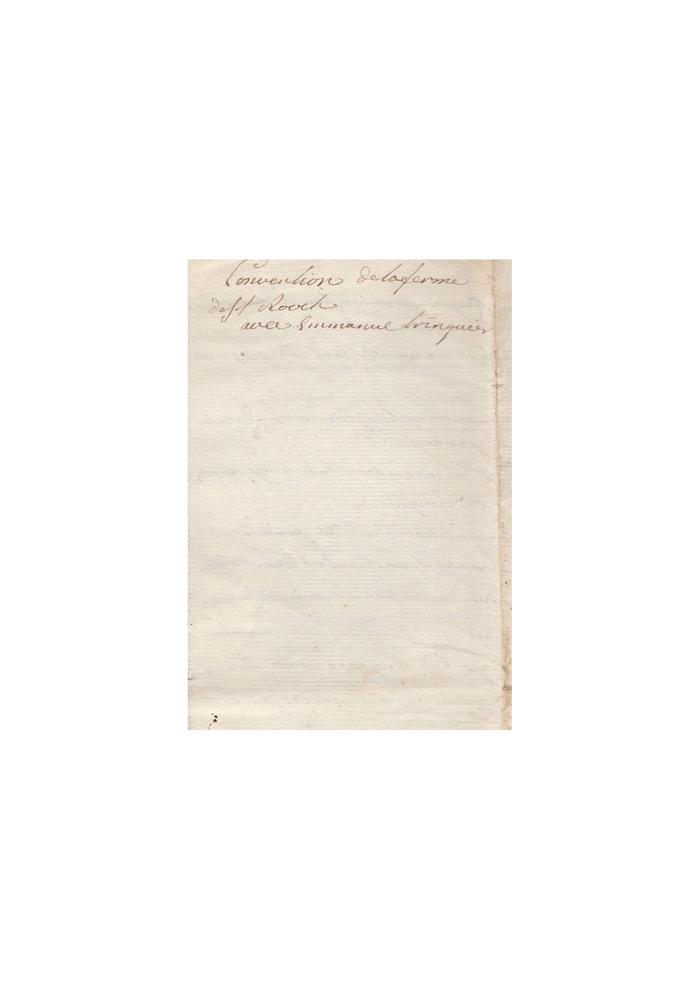 Convention de la ferme
de st Rooch
avec Emmanuel trinquier